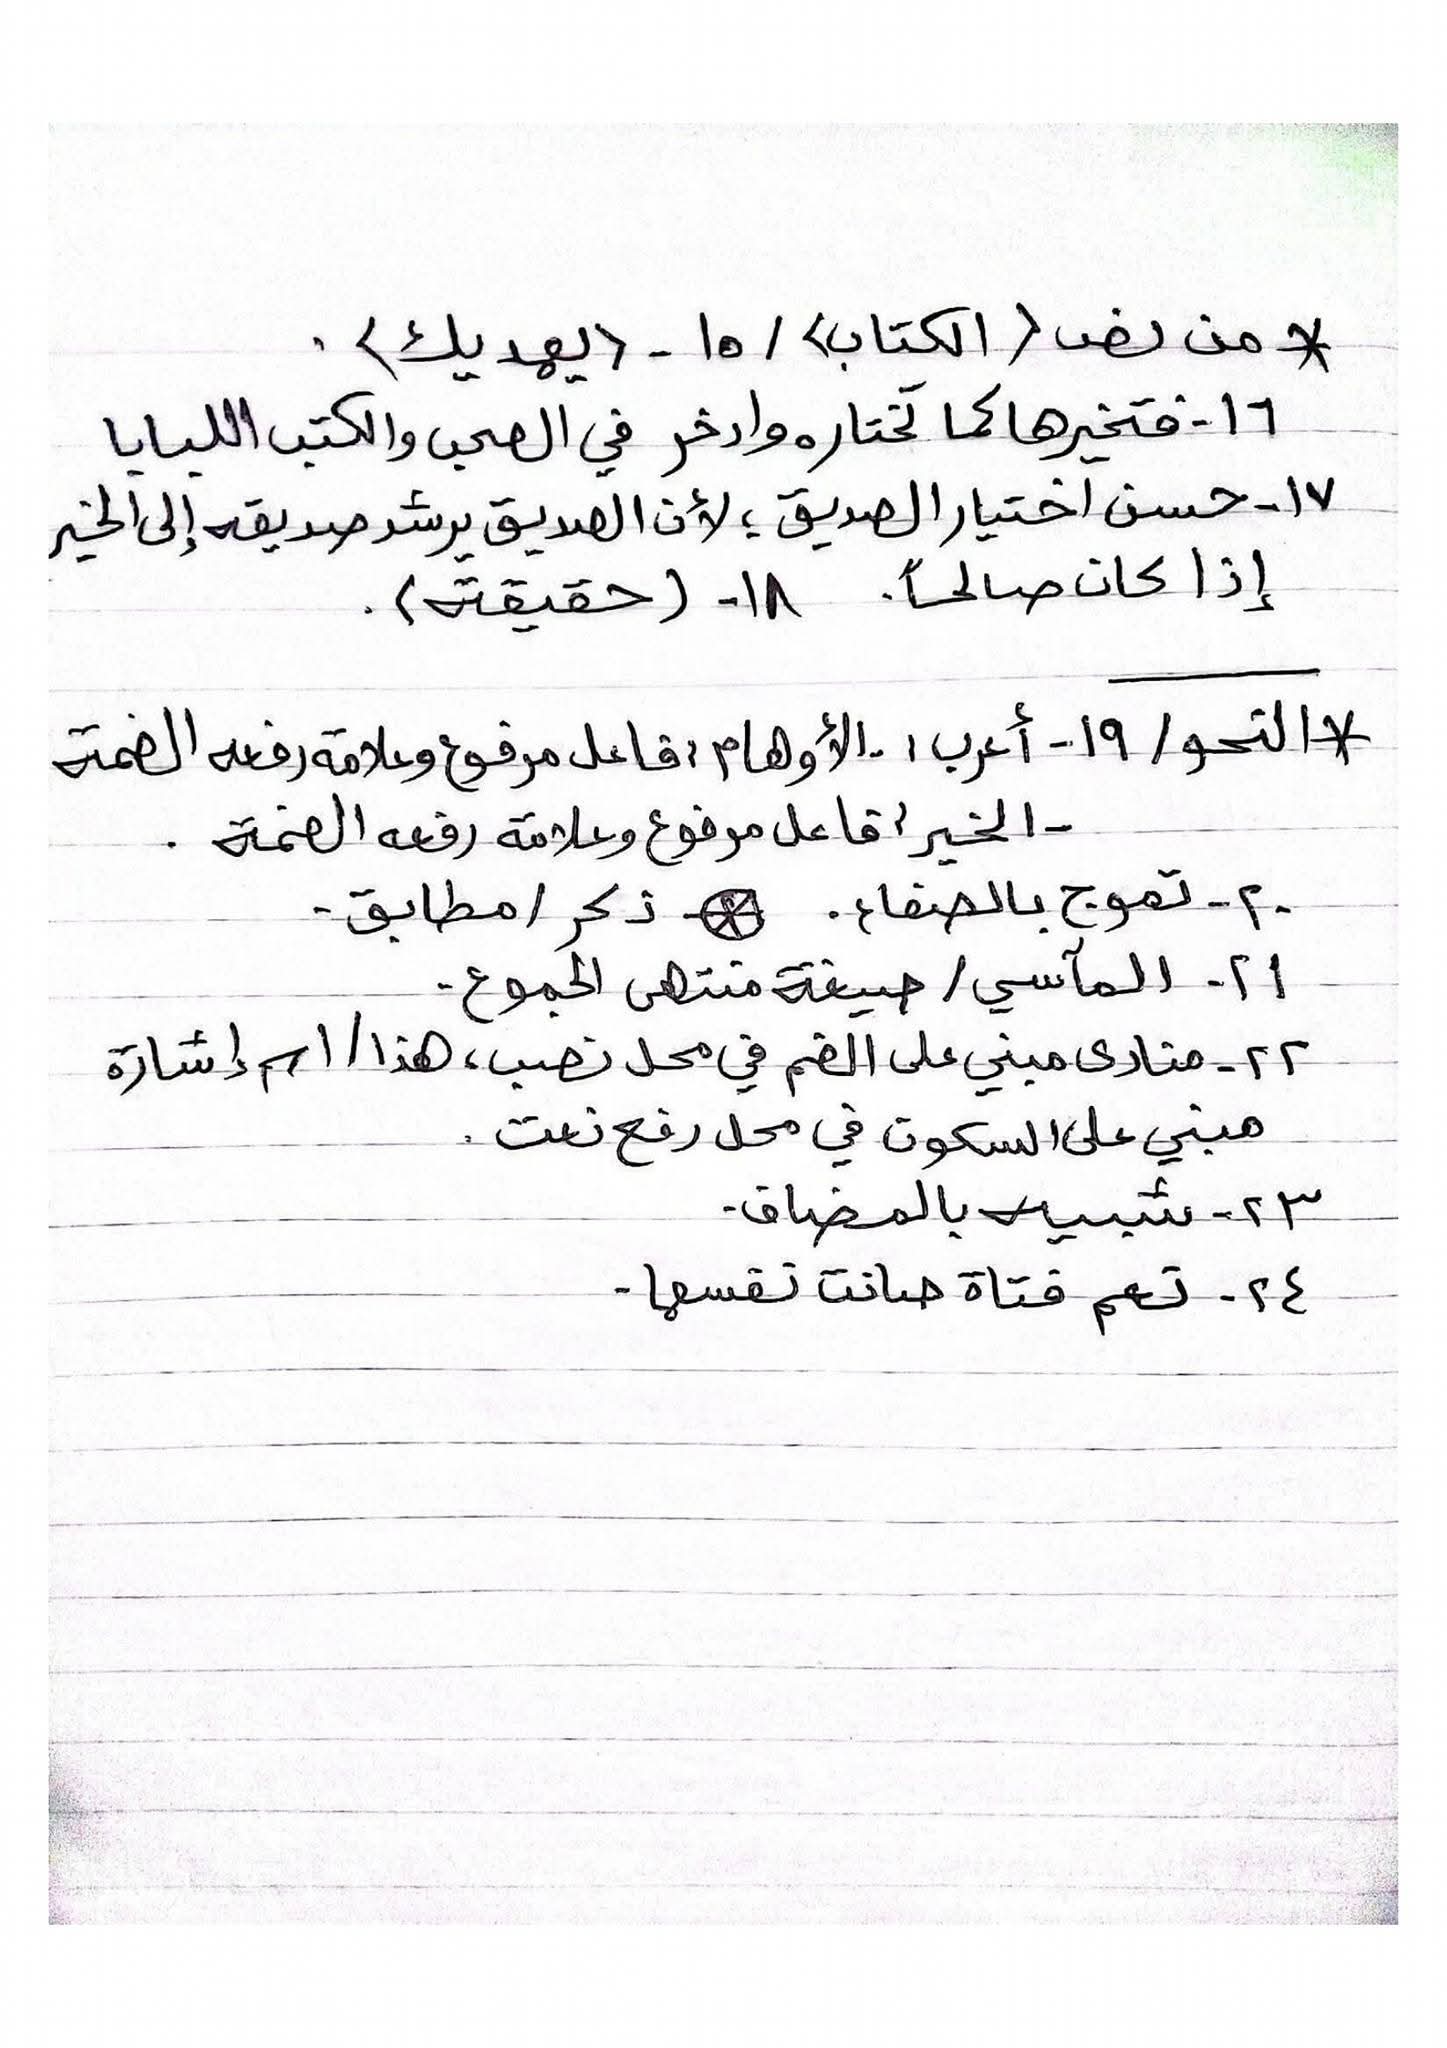 * من نص (الكتاب) / ١٥ - (يهديك) .
١٦- فتخيرها كما تختاره وادخر في الصحب والكتب اللبابا
١٧- حسن اختيار الصديق ؛ لأن الصديق يرشد صديقه إلى الخير
إذا كان صالحاً . ١٨- (حقيقة) .
* النحو / ١٩- أعرب : - الأوهام : فاعل مرفوع وعلامة رفعه الضمة
- الخير : فاعل مرفوع وعلامة رفعه الضمة .
٢٠- تموج بالصفاء . - ذكر / مطابق -
٢١- المآسي / صيغة منتهى الجموع -
٢٢- منادى مبني على الضم في محل نصب ، هذا / اسم إشارة
مبني على السكون في محل رفع نعت .
٢٣- شبيه بالمضاف -
٢٤- نعم فتاة صانت نفسها -